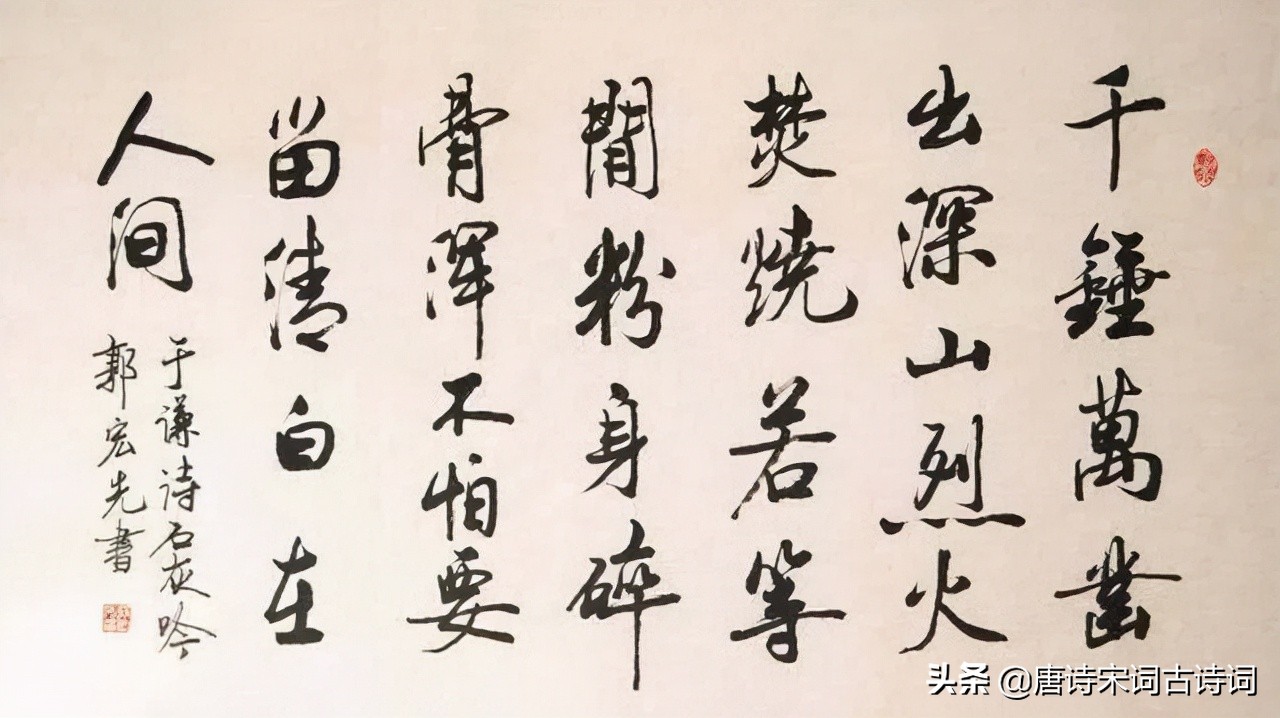 千錘萬凿
出深山烈火
焚燒若等
閒粉身碎
骨渾不怕要
留清白在
人间
于谦诗石灰吟
郭宏先書
头条 @唐诗宋词古诗词